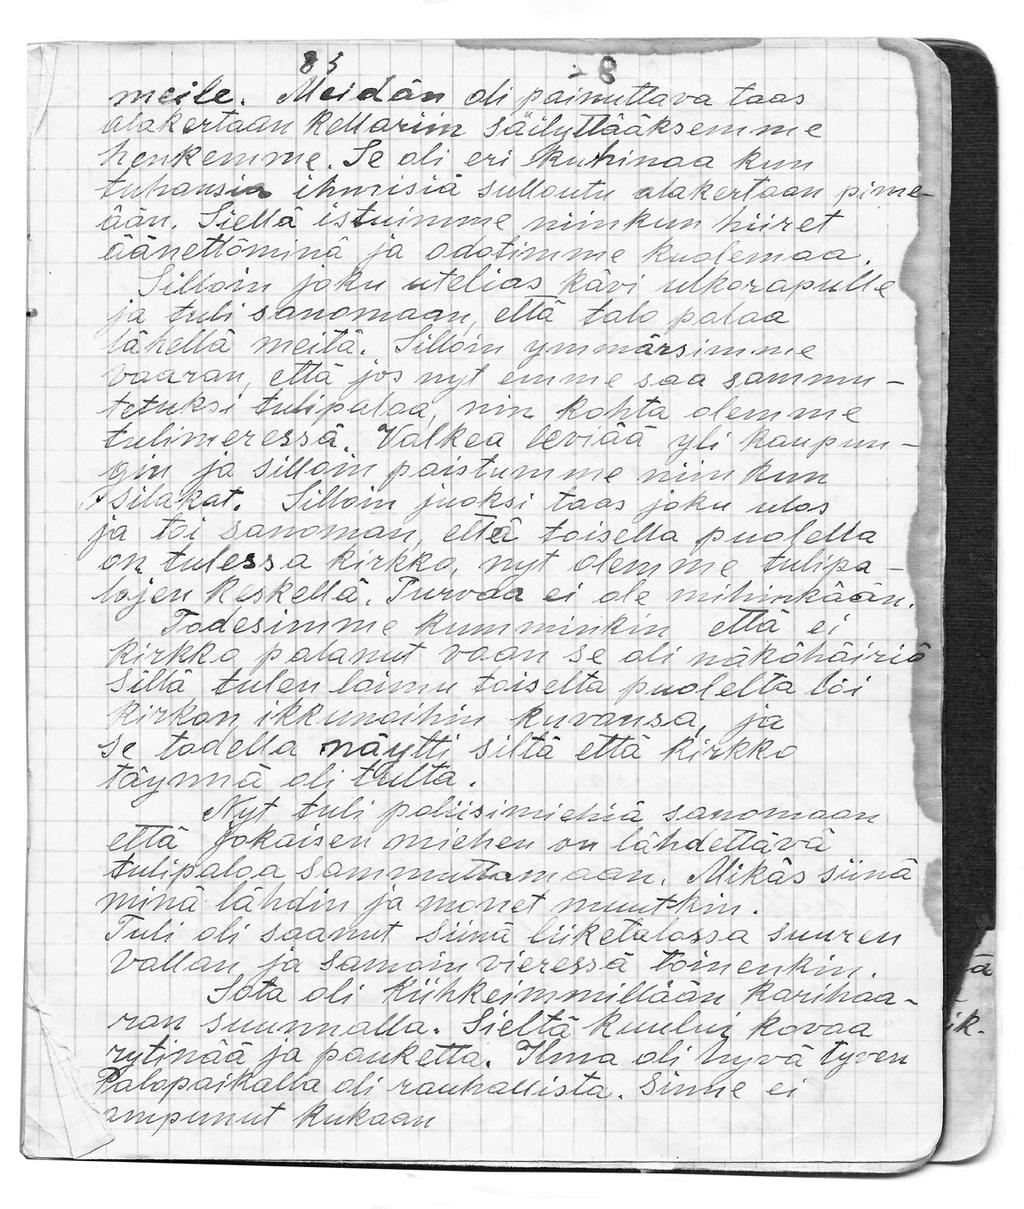 85 28
meile. Meidän oli painuttava taas
alakertaan kellariin säilyttääksemme
henkemme. Se oli eri kuhinaa kun
tuhansia ihmisiä sulloutu alakertaan pime-
ään. Siellä istuimme niinkun hiiret
äänettöminä ja odotimme kuolemaa.
Silloin joku utelias kävi ulkorapulle
ja tuli sanomaan, että talo palaa
lähellä meitä. Silloin ymmärsimme
vaaran, että jos nyt emme saa sammu-
tetuksi tulipaloa, nin kohta olemme
tulimeressä. Valkea leviää yli kaupun-
gin ja silloin paistumme niinkun
silakat. Silloin juoksi taas joku ulos
ja toi sanoman, että toisella puolella
on tulessa kirkko, nyt olemme tulipa-
lojen keskellä. Turvaa ei ole mihinkään.
Todesimme kumminkin että ei
kirkko palanut vaan se oli näköhäiriö
Sillä tulen loimu toiselta puolelta löi
kirkon ikkunoihin kuvansa, ja
se todella näytti siltä että kirkko
täynnä oli tulta.
Nyt tuli poliisimiehiä sanomaan
että jokaisen miehen on lähdettävä
tulipaloa sammuttamaan. Mikäs siinä
minä lähdin ja monet muutkin.
Tuli oli saanut siinä liiketalossa suuren
vallan ja samoin vieressä toinenkin.
Sota oli kiihkeimmillään karihaa-
ran suunnalla. Sieltä kuului kovaa
rytinää ja pauketta. Ilma oli hyvä tyven
Palopaikalla oli rauhallista. Sinne ei
ampunut kukaan